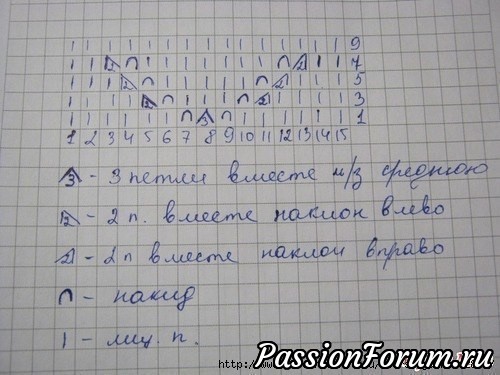 | | | | | | | | | | | | | | | 9
| | 2 ∩ | | | | | | | ∩ 2 | | 7
| | | 2 ∩ | | | | | ∩ 2 | | | 5
| | | | 2 ∩ | | | ∩ 2 | | | | 3
| | | | | | ∩ 3 ∩ | | | | | | 1
1 2 3 4 5 6 7 8 9 10 11 12 13 14 15
3 - 3 петли вместе и/з среднюю
2 - 2 п. вместе наклон влево
2 - 2 п вместе наклон вправо
∩ - накид
| - лиц. п.
PassionForum.ru